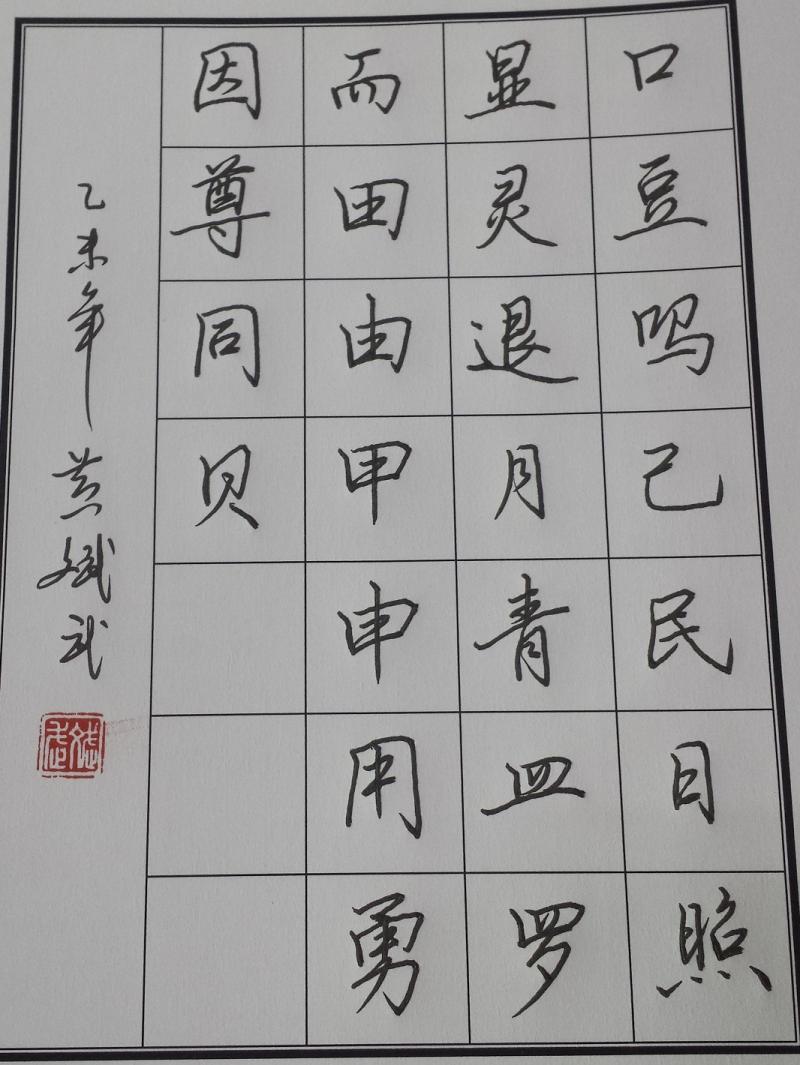 口豆吗己民日照
显灵退月青皿罗
而田由甲申用勇
因尊同贝
乙未年 黄斌武